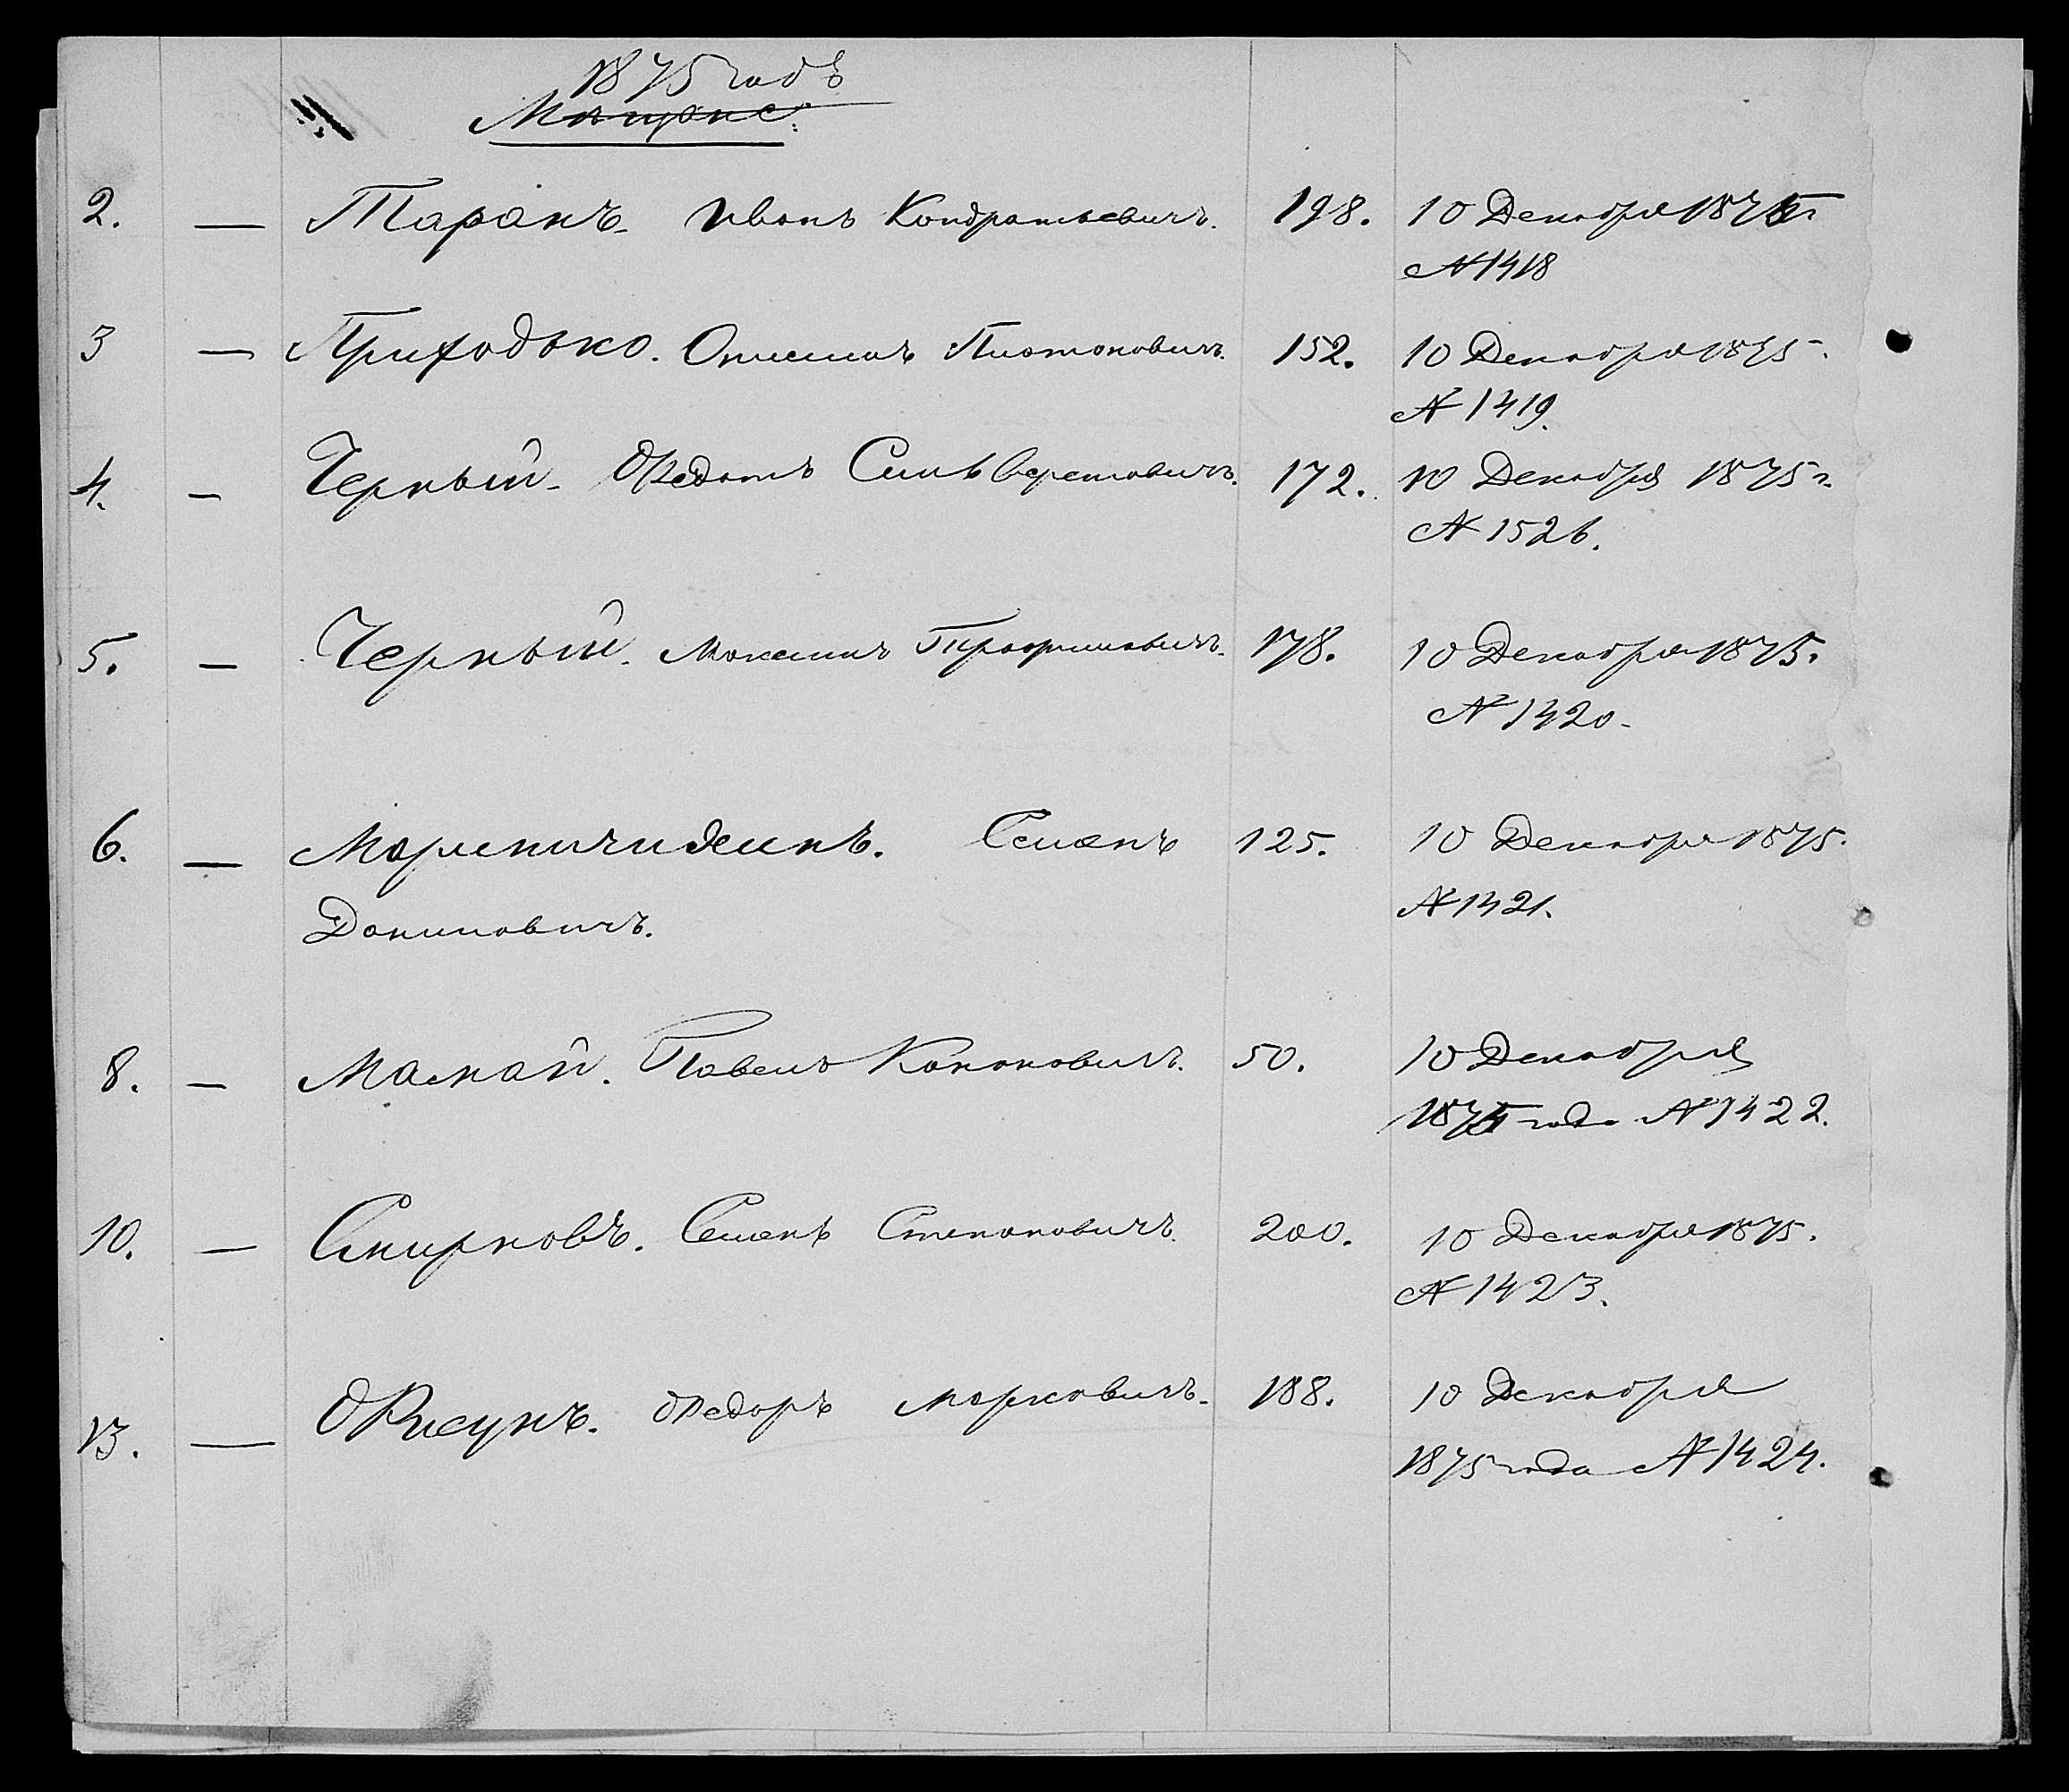 1875 годъ
Мѣщане:
2. — Таранъ. Иванъ Кондратьевичъ. 198. 10 Декабря 1875 г.
№ 1418
3 — Приходько. Онисимъ Платоновичъ. 152. 10 Декабря 1875.
№ 1419.
4. — Черный. Федотъ Сильверстовичъ. 172. 10 Декабря 1875 г.
№ 1526.
5. — Черный. Максимъ Трофимовичъ. 178. 10 Декабря 1875.
№ 1420.
6. — Семенъ 125. 10 Декабря 1875.
Даниловичъ. № 1421.
8. — Мамай. Павелъ Кононовичъ. 50. 10 Декабря
1875 года № 1422.
10. — Смирновъ. Семенъ Степановичъ. 200. 10 Декабря 1875.
№ 1423.
13. — Фисунъ. Федоръ Марковичъ. 188. 10 Декабря
1875 года № 1424.